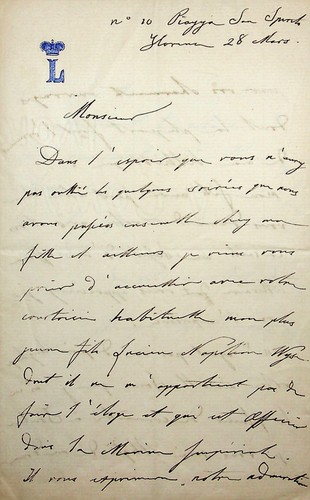 n° 10 Piazza San Spirito
Florence 28 Mars.
L
Monsieur
Dans l'espoir que vous n'avez
pas oublié les quelques soirées que nous
avons passées ensemble chez ma
fille et ailleurs je viens vous
prier d'accueillir avec votre
courtoisie habituelle mon plus
jeune fils Lucien Napoléon Wyse
dont il ne m'appartient pas de
faire l'éloge et qui est Officier
dans la Marine Impériale.
Il vous exprimera notre